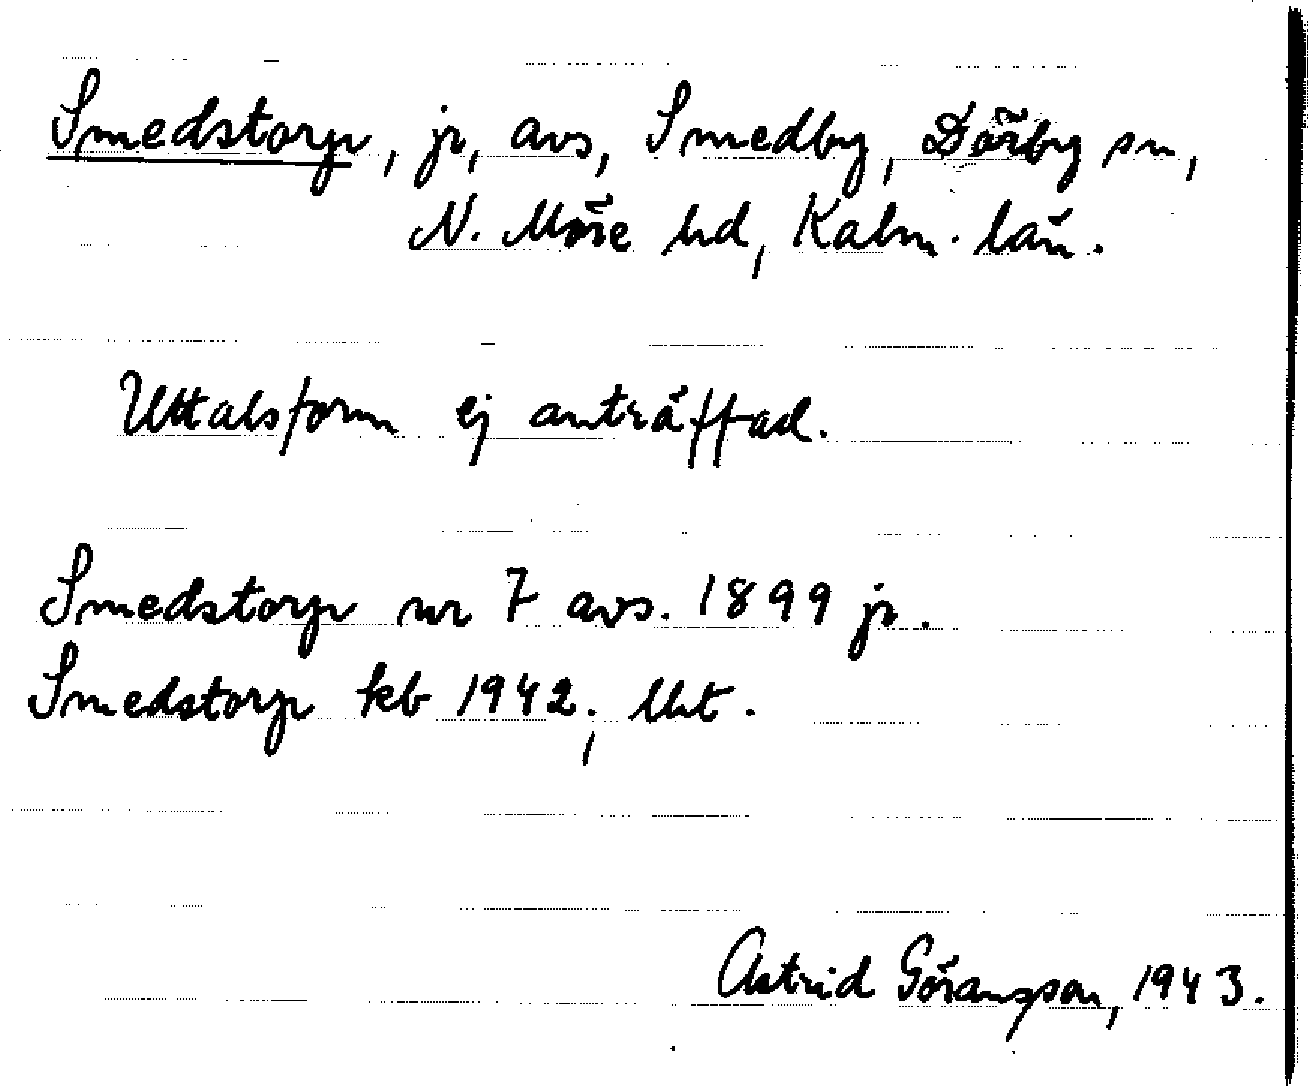 Smedstorp, jr, avs, Smedby, Dörby sn,
N. Möre hd, Kalm. län.
Uttalsform ej anträffad.
Smedstorp nr 7 avs. 1899 jr.
Smedstorp kb 1942; lht.
Astrid Göransson, 1943.